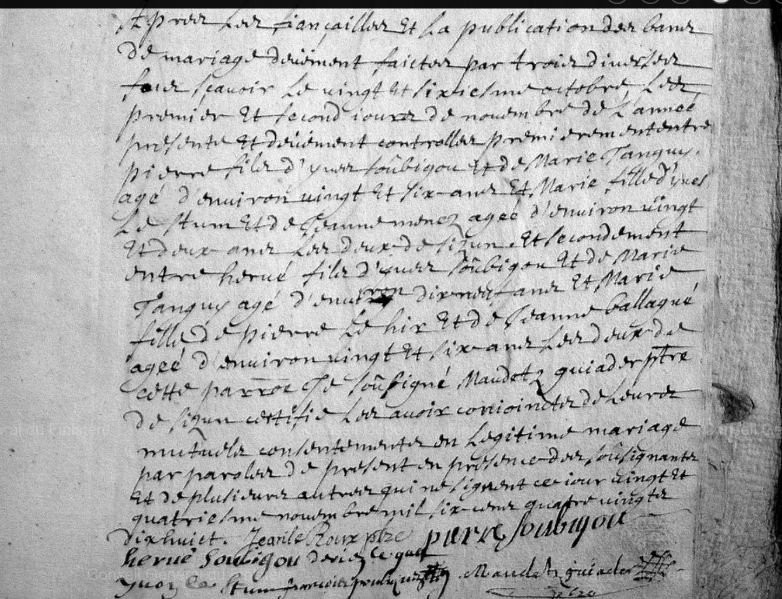 Apres les fiancailles Et la publication des bans
de mariage deüement faictes par trois diverses
fois sçavoir Le vingt et sixiesme octobre, Les
premier Et second iours de novembre de L'année
presente Et deüement controllés premierement entre
pierre fils d'yves soübigou Et de Marie Tanguy.
agé d'environ vingt Et six ans Et Marie fille d'yves
Le stum Et de Jeanne menez ageé d'environ vingt
Et deux ans Les deux de sizun. Et secondement
entre hervé fils d'yves soübigou Et de Marie
Tanguy agé d'environ dix neuf ans Et Marie
fille de pierre Le hir Et de Jeanne ballagué
ageé d'environ vingt Et six ans Les deux de
cette parroe Je soübsigné Maudetz guiader ptre
de sizun certifie Les avoir conioinctes de Leures
mutuels consentements en Legitime mariage
par paroles de present en presence des soübsignants
Et de plusieurs autres qui ne signent ce iour vingt Et
quatriesme novembre mil six cens quatre vingts
dix huict. Jean le Roux ptre pierre soubigou
hervé Soubigou
yvon Le Stum Maudetz guiader